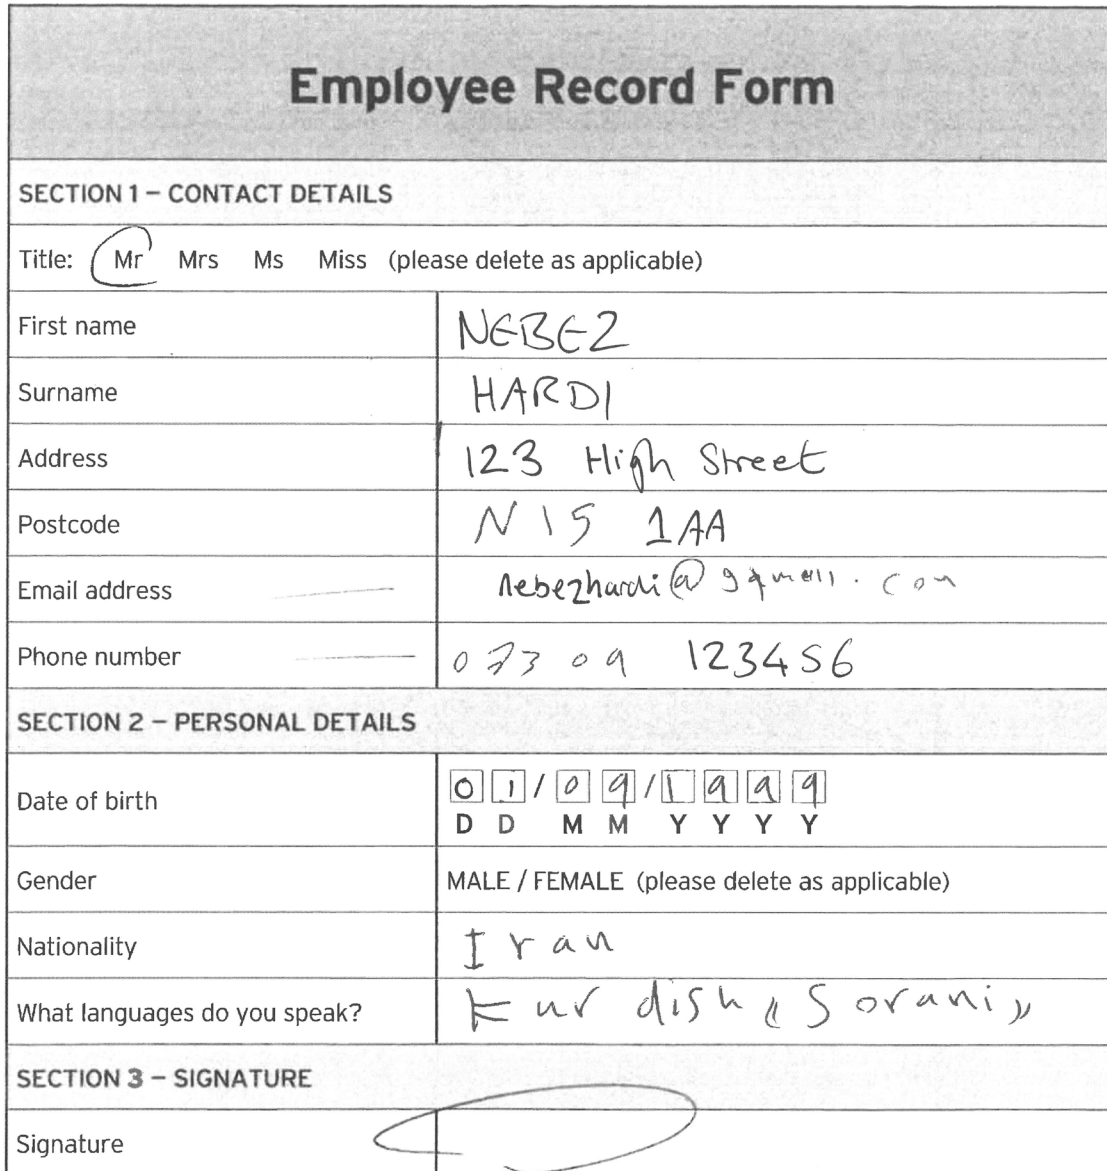 Employee Record Form
SECTION 1 – CONTACT DETAILS
Title: Mr Mrs Ms Miss (please delete as applicable)
First name NEBEZ
Surname HARDI
Address 123 High Street
Postcode N15 1AA
Email address nebezhardi@gqmail.com
Phone number 07309 123456
SECTION 2 – PERSONAL DETAILS
Date of birth 01/09/1999
DD MM YYYY
Gender MALE / FEMALE (please delete as applicable)
Nationality Iran
What languages do you speak? Kurdish «Sorani»
SECTION 3 – SIGNATURE
Signature